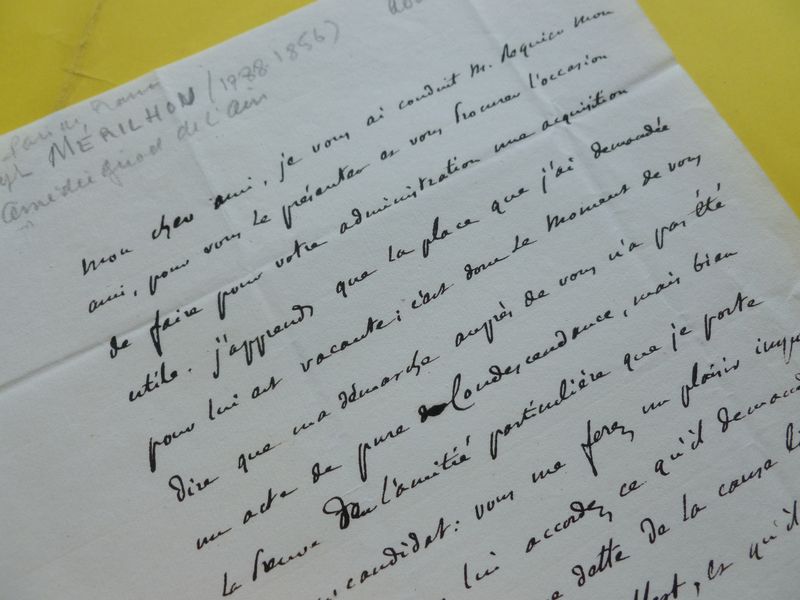 MÉRILHON (1788-1856)
de l'Ain
Mon cher ami, je vous ai conduit M. Requien mon
ami, pour vous le présenter et vous procurer l'occasion
de faire pour votre administration une acquisition
utile. j'apprends que la place que j'ai demandée
pour lui est vacante; c'est donc le moment de vous
dire que ma démarche auprès de vous n'a pas été
un acte de pure Condescendance, mais bien
la preuve de l'amitié particulière que je porte
candidat: vous me ferez un plaisir
lui accordez ce qu'il
dette de la cause
, et qu'il